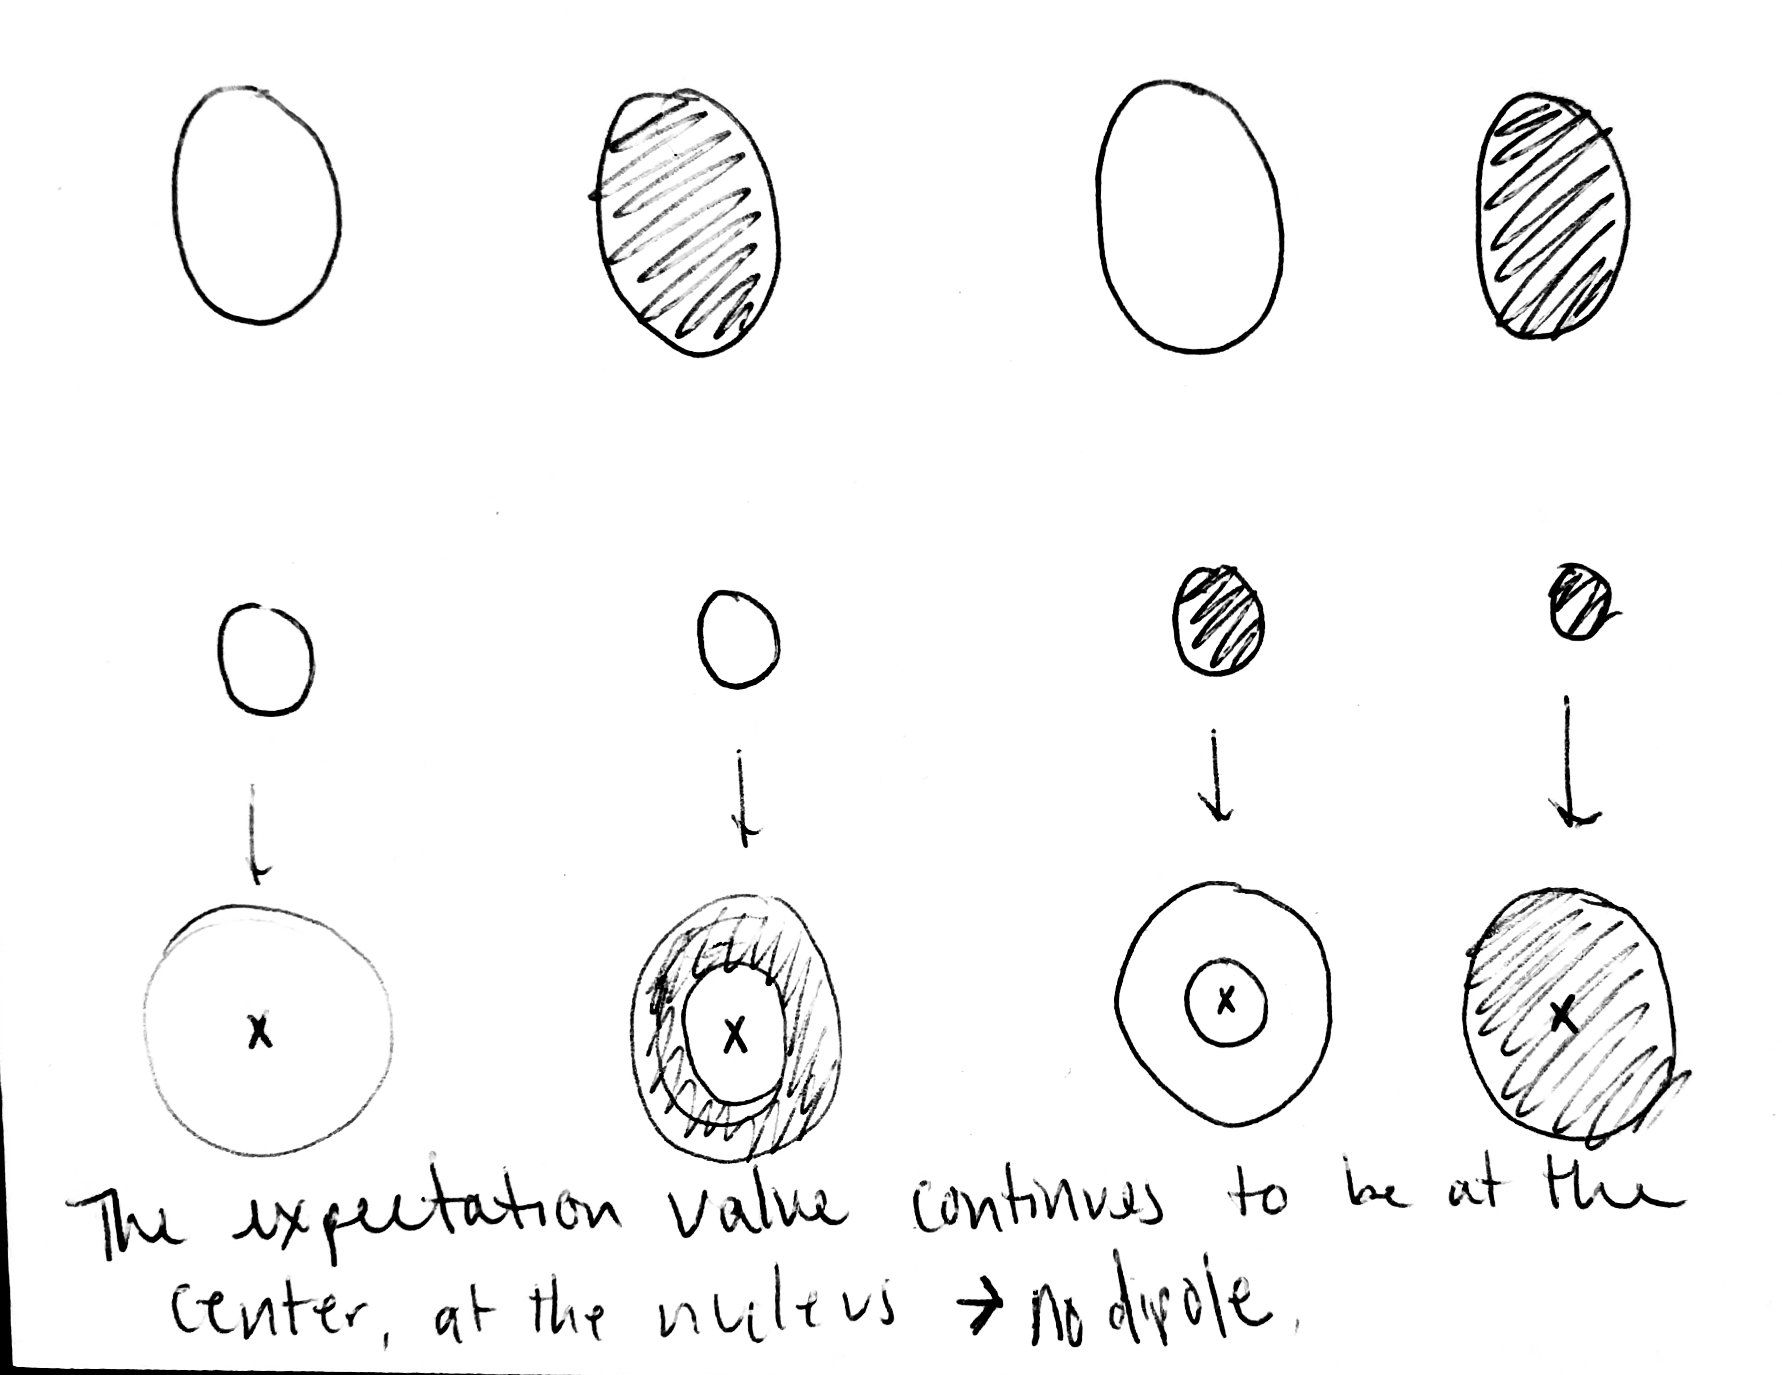 x x x x
The expectation value continues to be at the
center, at the nucleus → no dipole.